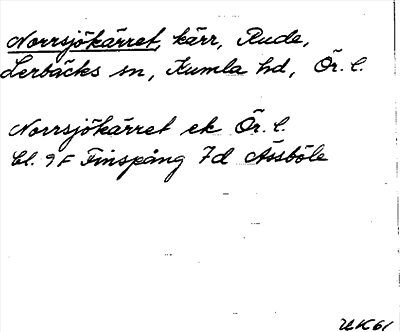 Norrsjökärret, kärr, Rude,
Lerbäcks sn, Kumla hd, Ör. l.
Norrsjökärret ek Ör. l.
bl. 9F Finspång 7d Åssböle
UK61